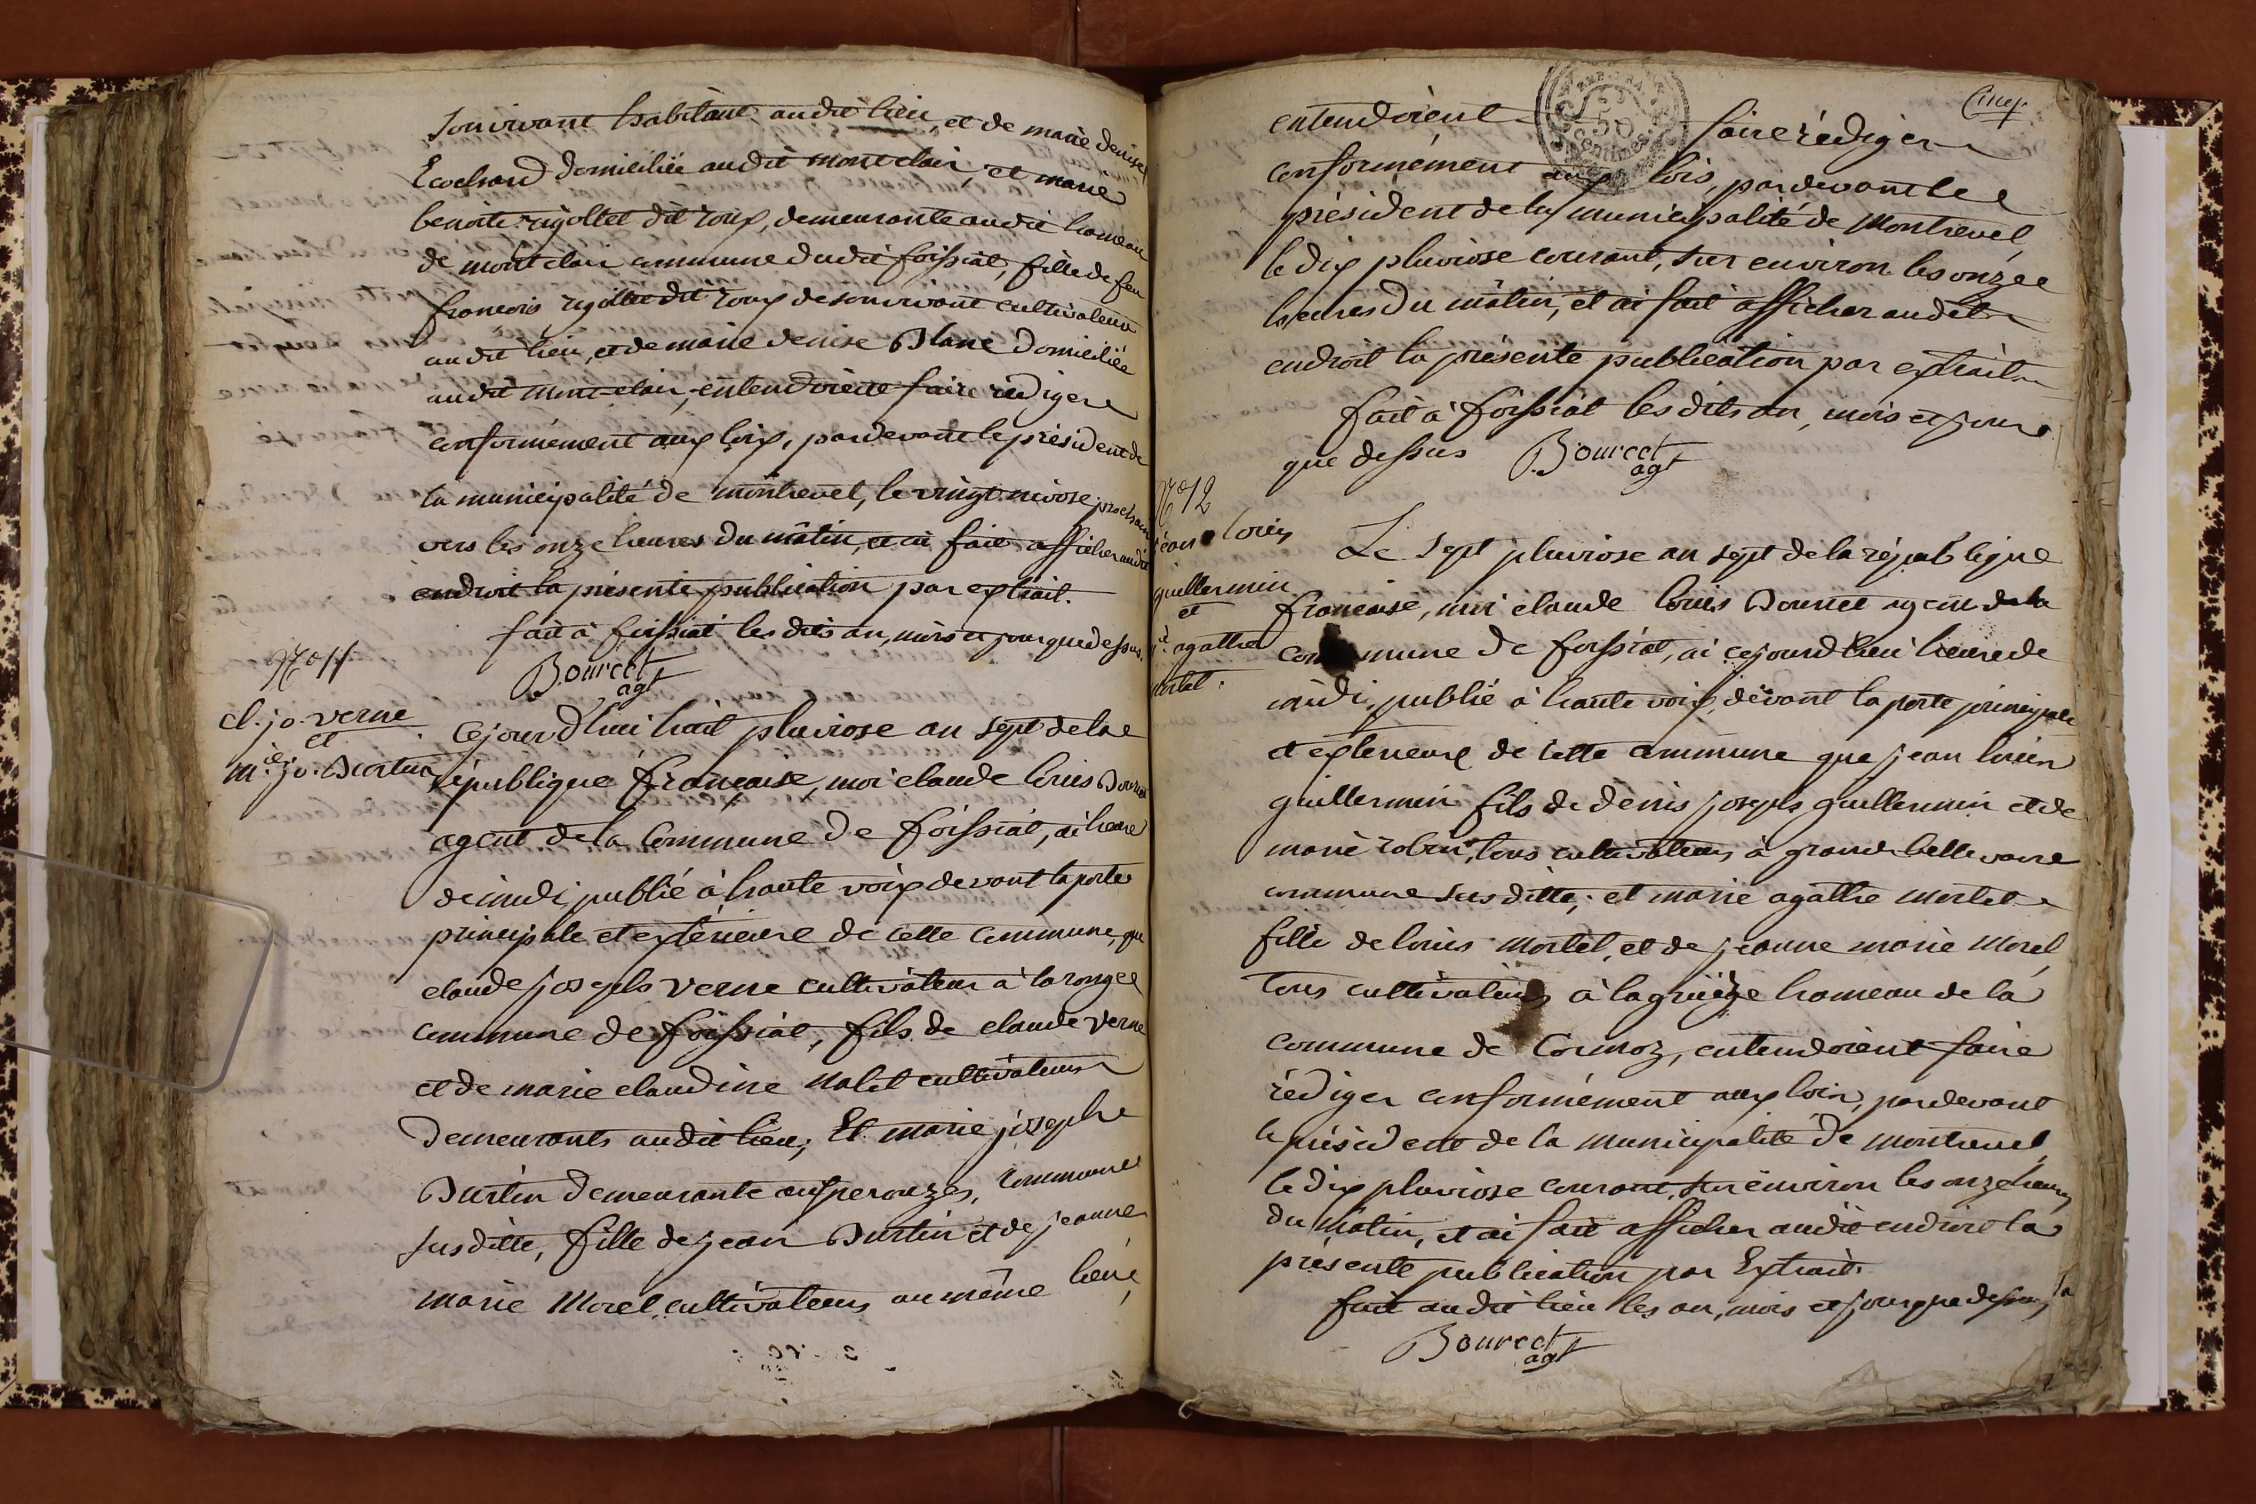 son vivant habitant audit lieu, et de marie denise
Ecochard domiciliée audit montclair et marie
benoite rigollet dit roux, demeurante audit hameau
de montclair commune dudit foissiat, fille de feu
francois rigollet dit roux de son vivant cultivateur
audit lieu, et de marie denise Blanc domiciliée
audit mont-clair, entendoient faire rediger
conformément aux loix, pardevant le président de
la municipalité de montrevel, le vingt nivose prochain
vers les onze heures du mâtin, et ai fait afficher audit
endroit la présente publication par extrait.
fait à foissiat les dits an, mois et jour que dessus.
Bourcet
agt
N° 11
cl. jo. verne
et
m.ie jo. Burtin
Cejourd'hui huit pluviose an sept de la
république française, moi claude louis Bourcet
agent de la Commune de foissiat, ai heure
de midi, publié à haute voix devant la porte
principale et extérieure de cette commune, que
claude joseph verne cultivateur à la ronge
commune de foissiat, fils de claude verne
et de marie claudine cultivateurs
Demeurants audit lieu; Et marie josephe
Burtin demeurante aux perouzes, commune
susditte, fille de jean Burtin et de jeanne
marie Morel cultivateurs au même lieu,
Cinq.
50
Centimes
entendoient faire rédiger
conformément aux lois, pardevant le
président de la municipalité de Montrevel
le dix pluviose courant, sur environ les onze
heures du mâtin, et ai fait afficher audit
endroit la présente publication par extrait
fait à foissiat les dits an, mois et jour
que dessus Bourcet
agt
N° 12
jean louis
guillermin
et
agathe
mortel.
Le sept pluviose an sept de la république
francaise, moi claude louis Bourcet agent de la
commune de foissiat, ai cejourd'hui heure de
midi, publié à haute voix, devant la porte principale
et exterieure de cette commune que jean louis
guillermin fils de denis joseph guillermin et de
marie robin, tous cultivateurs à grande bellevavre
commune susditte; et marie agathe mortel
fille de louis mortel, et de jeanne marie Morel
tous cultivateurs à la grüeze hameau de la
commune de Cormoz, entendoient faire
rédiger conformément aux lois, pardevant
le président de la municipalité de montrevel
le dix pluviose courant, sur environ les onze heures
du mâtin, et ai fait afficher audit endroit la
présente publication par Extrait.
fait audit lieu les an, mois et jour que dessus
Bourcet
agt